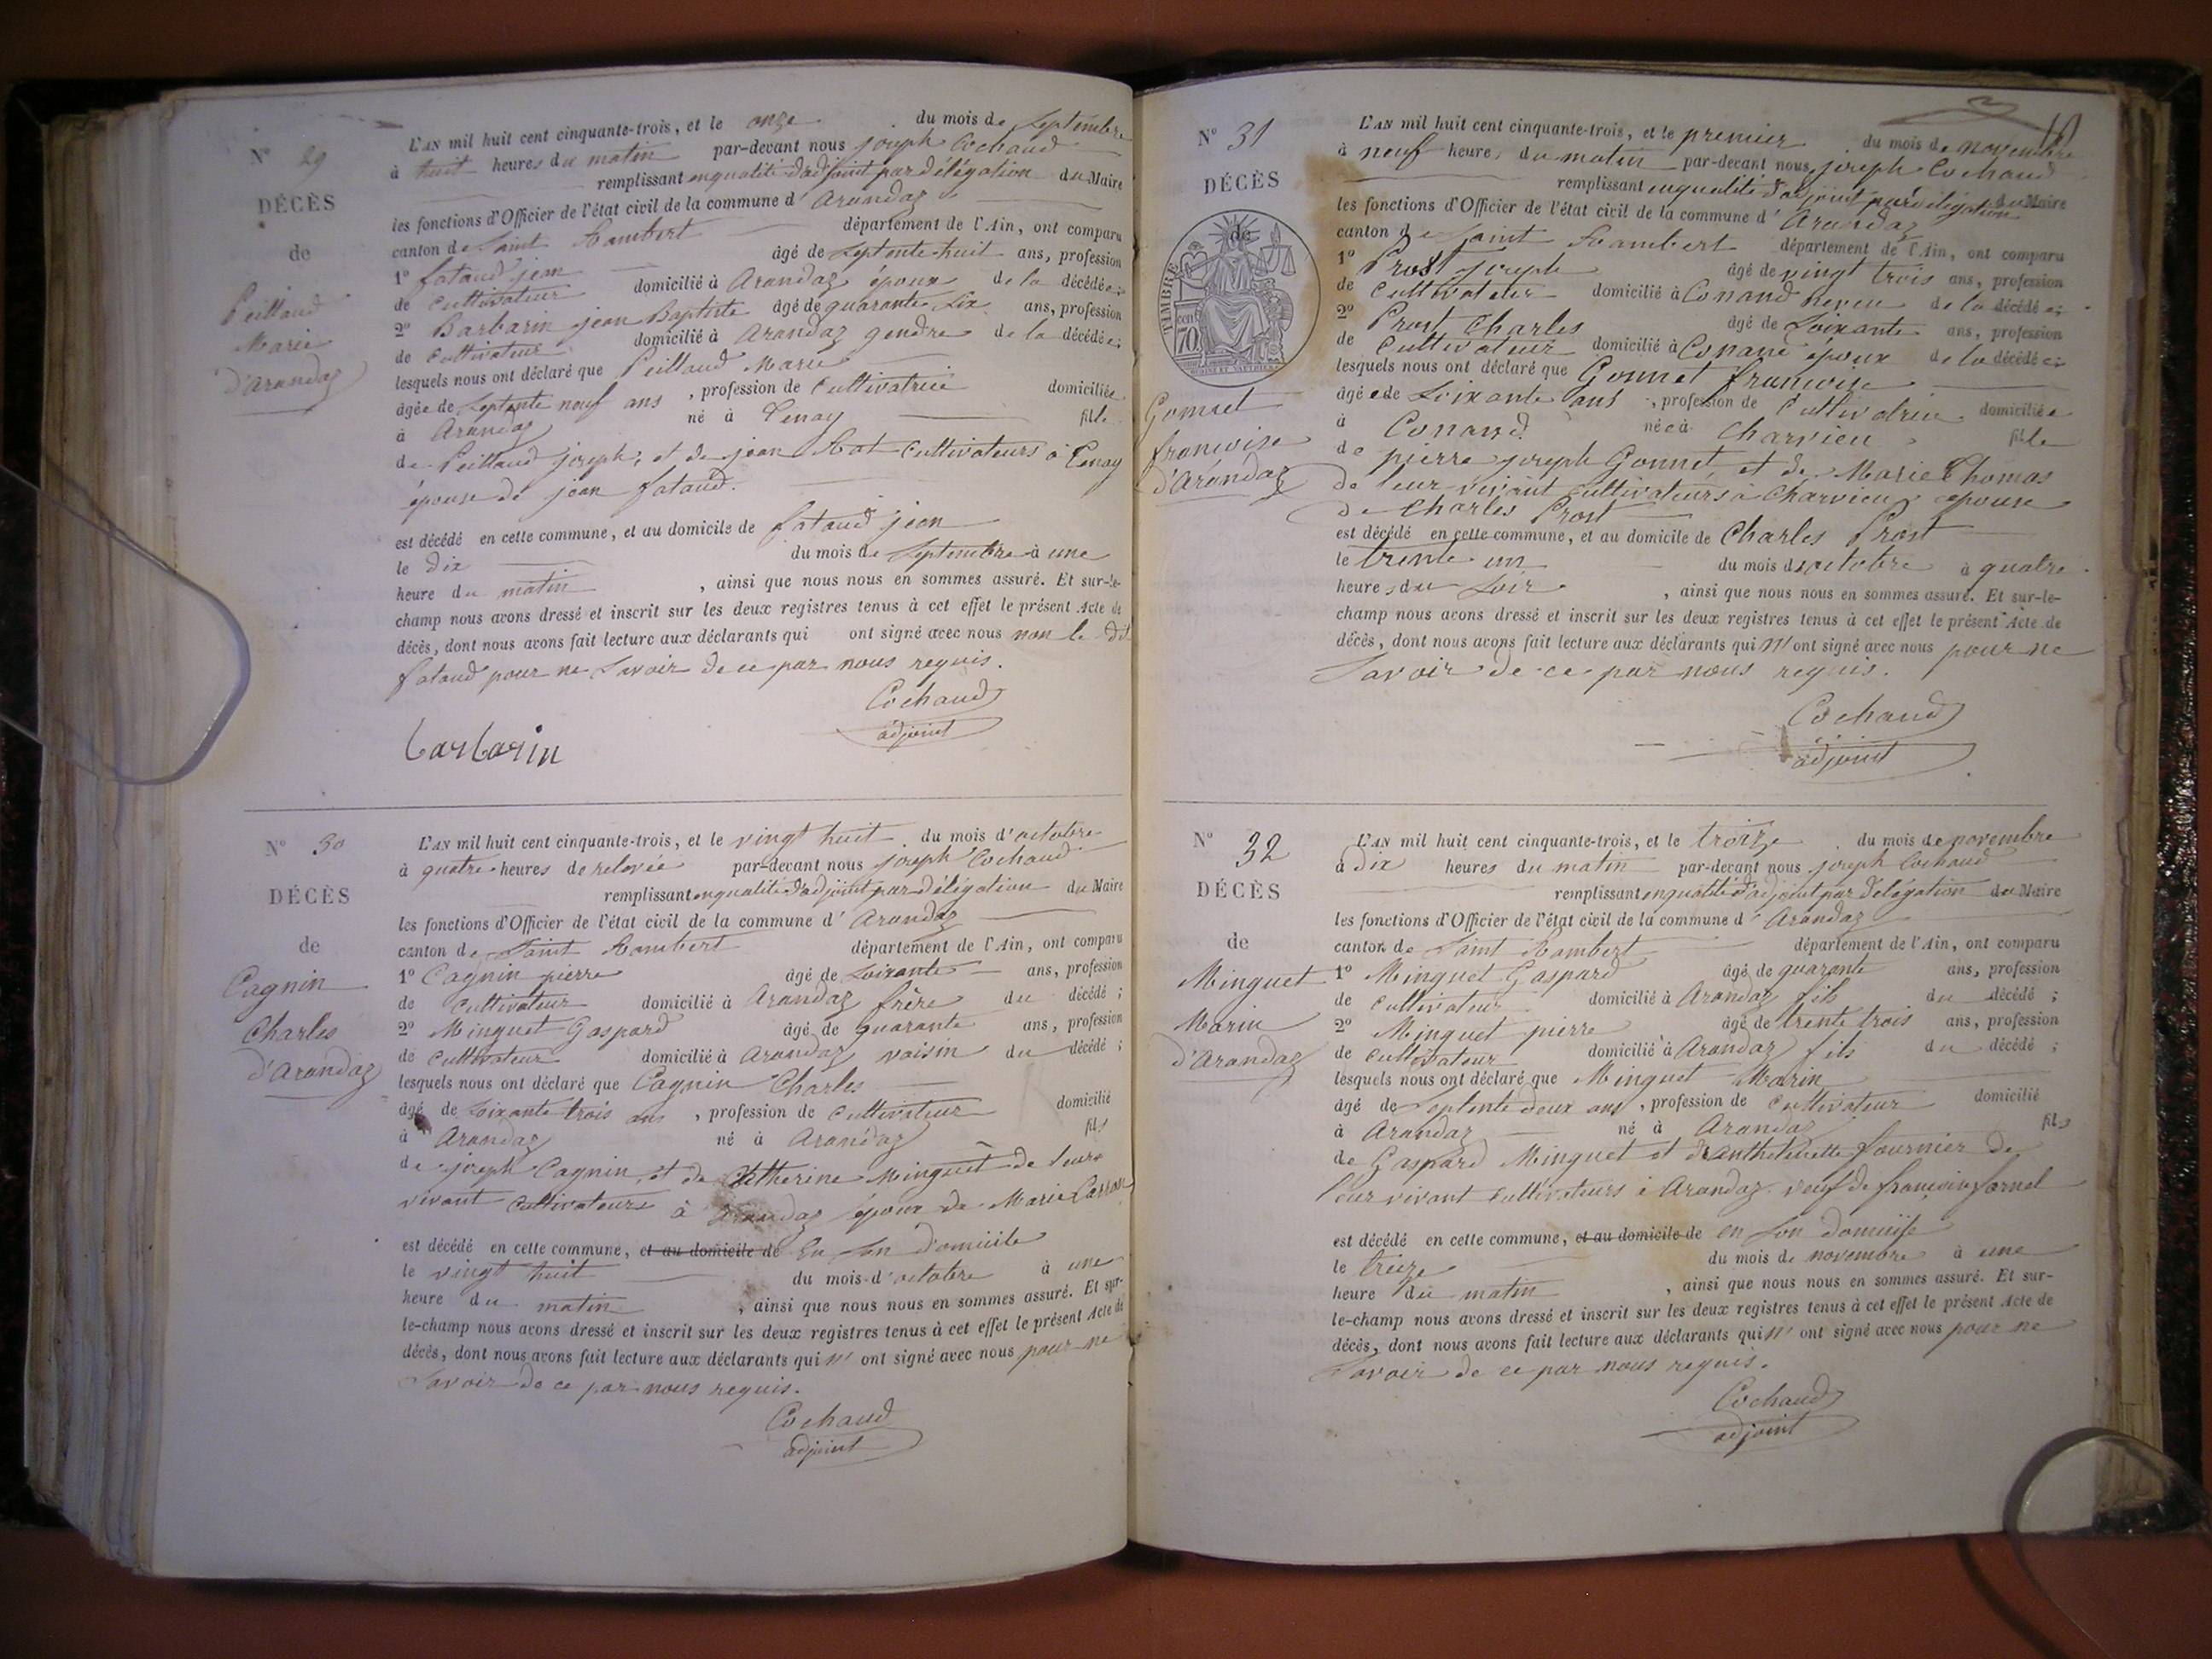 N° 29
DÉCÈS
de
Peillaud
Marie
d'Arandaz
L'AN mil huit cent cinquante-trois, et le onze du mois de Septembre
à huit heures du matin par-devant nous joseph Cochaud
remplissant enqualité d'adjoint par délégation du Maire
les fonctions d'Officier de l'état civil de la commune d' Arandaz
canton de Saint Rambert département de l'Ain, ont comparu
1° fataud jean âgé de Septente huit ans, profession
de Cultivateur domicilié à Arandaz époux de la décédée;
2° Barbarin jean Baptiste âgé de quarante Six ans, profession
de Cultivateur domicilié à Arandaz gendre de la décédée;
lesquels nous ont déclaré que Peillaud Marie
âgée de Septente neuf ans , profession de Cultivatrice domiciliée
à Arandaz né à Tenay fille
de Peillaud joseph, et de jean Rat Cultivateurs à Tenay
épouse de jean fataud.
est décédé en cette commune, et au domicile de fataud jean
le dix du mois de Septembre à une
heure du matin , ainsi que nous nous en sommes assuré. Et sur-le-
champ nous avons dressé et inscrit sur les deux registres tenus à cet effet le présent Acte de
décès, dont nous avons fait lecture aux déclarants qui ont signé avec nous non le dit
fataud pour ne Savoir de ce par nous requis.
Cochaud
adjoint
barbarin
N° 30
DÉCÈS
de
Cagnin
Charles
d'Arandaz
L'AN mil huit cent cinquante-trois, et le vingt huit du mois d'octobre
à quatre heures de relevée par-devant nous joseph Cochaud
remplissant enqualité d'adjoint par délégation du Maire
les fonctions d'Officier de l'état civil de la commune d' Arandaz
canton de Saint Rambert département de l'Ain, ont comparu
1° Cagnin pierre âgé de Soixante ans, profession
de Cultivateur domicilié à Arandaz frère du décédé ;
2° Minguet Gaspard âgé de quarante ans, profession
de Cultivateur domicilié à Arandaz voisin du décédé ;
lesquels nous ont déclaré que Cagnin Charles
âgé de Soixante trois ans , profession de Cultivateur domicilié
à Arandaz né à Arandaz fils
de joseph Cagnin, et de Catherine Minguet de leurs
vivant Cultivateurs à Arandaz époux de Marie Carron
est décédé en cette commune, et au domicile de En Son domicile
le vingt huit du mois d'octobre à une
heure du matin , ainsi que nous nous en sommes assuré. Et sur-
le-champ nous avons dressé et inscrit sur les deux registres tenus à cet effet le présent Acte de
décès, dont nous avons fait lecture aux déclarants qui n' ont signé avec nous pour ne
Savoir de ce par nous requis.
Cochaud
adjoint
N° 31
DÉCÈS
de
TIMBRE
70
Gonnet
francoise
d'Arandaz
L'AN mil huit cent cinquante-trois, et le premier du mois de novembre
à neuf heures du matin par-devant nous joseph Cochaud
remplissant enqualité d'adjoint par délégation du Maire
les fonctions d'Officier de l'état civil de la commune d' Arandaz
canton de Saint Rambert département de l'Ain, ont comparu
1° Prost joseph âgé de vingt trois ans, profession
de Cultivateur domicilié à Conand neveu de la décédée;
2° Prost Charles âgé de Soixante ans, profession
de Cultivateur domicilié à Conand époux de la décédée;
lesquels nous ont déclaré que Gonnet francoise
âgée de Soixante ans , profession de Cultivatrice domiciliée
à Conand née à Charvieu fille
de pierre joseph Gonnet, et de Marie Thomas
de leur vivant Cultivateurs à Charvieu épouse
de Charles Prost
est décédé en cette commune, et au domicile de Charles Prost
le trente un du mois d'octobre à quatre
heures du Soir , ainsi que nous nous en sommes assuré. Et sur-le-
champ nous avons dressé et inscrit sur les deux registres tenus à cet effet le présent Acte de
décès, dont nous avons fait lecture aux déclarants qui n' ont signé avec nous pour ne
Savoir de ce par nous requis.
Cochaud
adjoint
N° 32
DÉCÈS
de
Minguet
Marin
d'Arandaz
L'AN mil huit cent cinquante-trois, et le troize du mois de novembre
à dix heures du matin par-devant nous joseph Cochaud
remplissant enqualité d'adjoint par délégation du Maire
les fonctions d'Officier de l'état civil de la commune d' Arandaz
canton de Saint Rambert département de l'Ain, ont comparu
1° Minguet Gaspard âgé de quarante ans, profession
de Cultivateur domicilié à Arandaz fils du décédé ;
2° Minguet pierre âgé de trente trois ans, profession
de Cultivateur domicilié à Arandaz fils du décédé ;
lesquels nous ont déclaré que Minguet Marin
âgé de Septente deux ans , profession de Cultivateur domicilié
à Arandaz né à Arandaz fils
de Gaspard Minguet et fournier de
leur vivant Cultivateurs à Arandaz veuf de françoise fornel
est décédé en cette commune, et au domicile de en Son domicile
le treize du mois de novembre à une
heure du matin , ainsi que nous nous en sommes assuré. Et sur-
le-champ nous avons dressé et inscrit sur les deux registres tenus à cet effet le présent Acte de
décès, dont nous avons fait lecture aux déclarants qui n' ont signé avec nous pour ne
Savoir de ce par nous requis.
Cochaud
adjoint